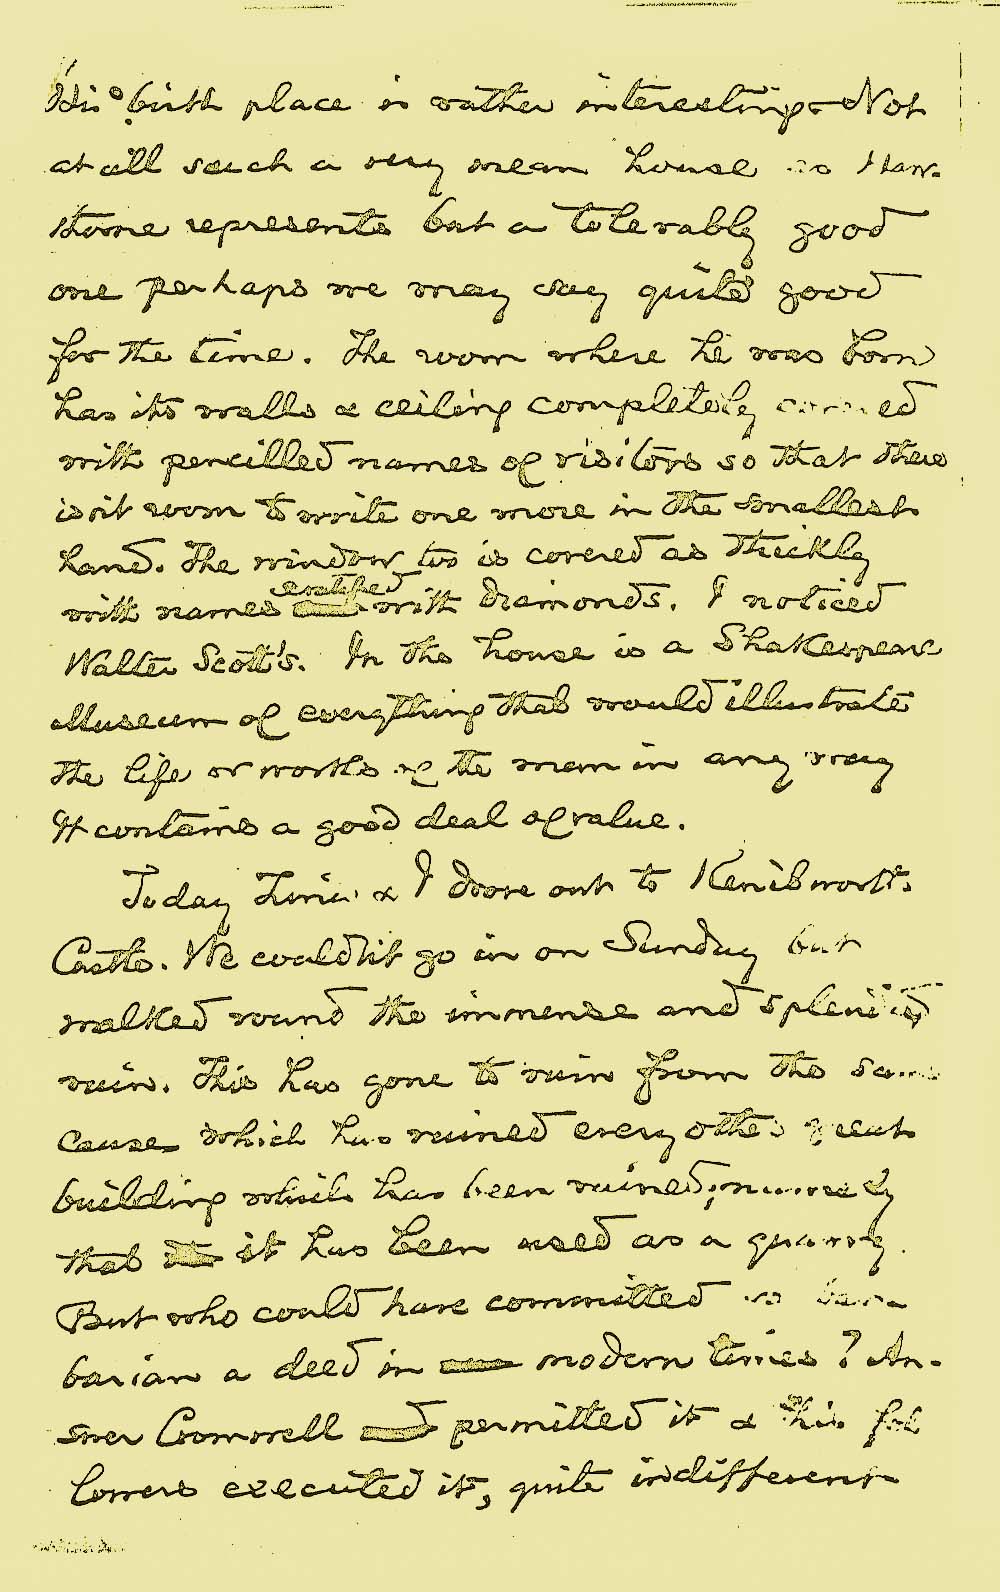 His birth place is rather interesting. Not
at all such a very mean house as Haw-
thorne represents but a tolerably good
one perhaps we may say quite good
for the time. The room where he was born
has its walls & ceiling completely covered
with pencilled names of visitors so that there
isn't room to write one more in the smallest
hand. The window too is covered as thickly
with names scratched with diamonds. I noticed
Walter Scott's. In the house is a Shakespeare
Museum of everything that would illustrate
the life or works of the man in any way
It contains a good deal of value.
Today & I drove out to Kenilworth
Castle. We couldn't go in on Sunday but
walked round the immense and splendid
ruin. This has gone to ruin from the same
cause which has ruined every other great
building which has been ruined; namely
that it has been used as a quarry.
But who could have committed so bar-
barian a deed in modern times? An-
swer Cromwell permitted it & his fol
lowers executed it, quite indifferent